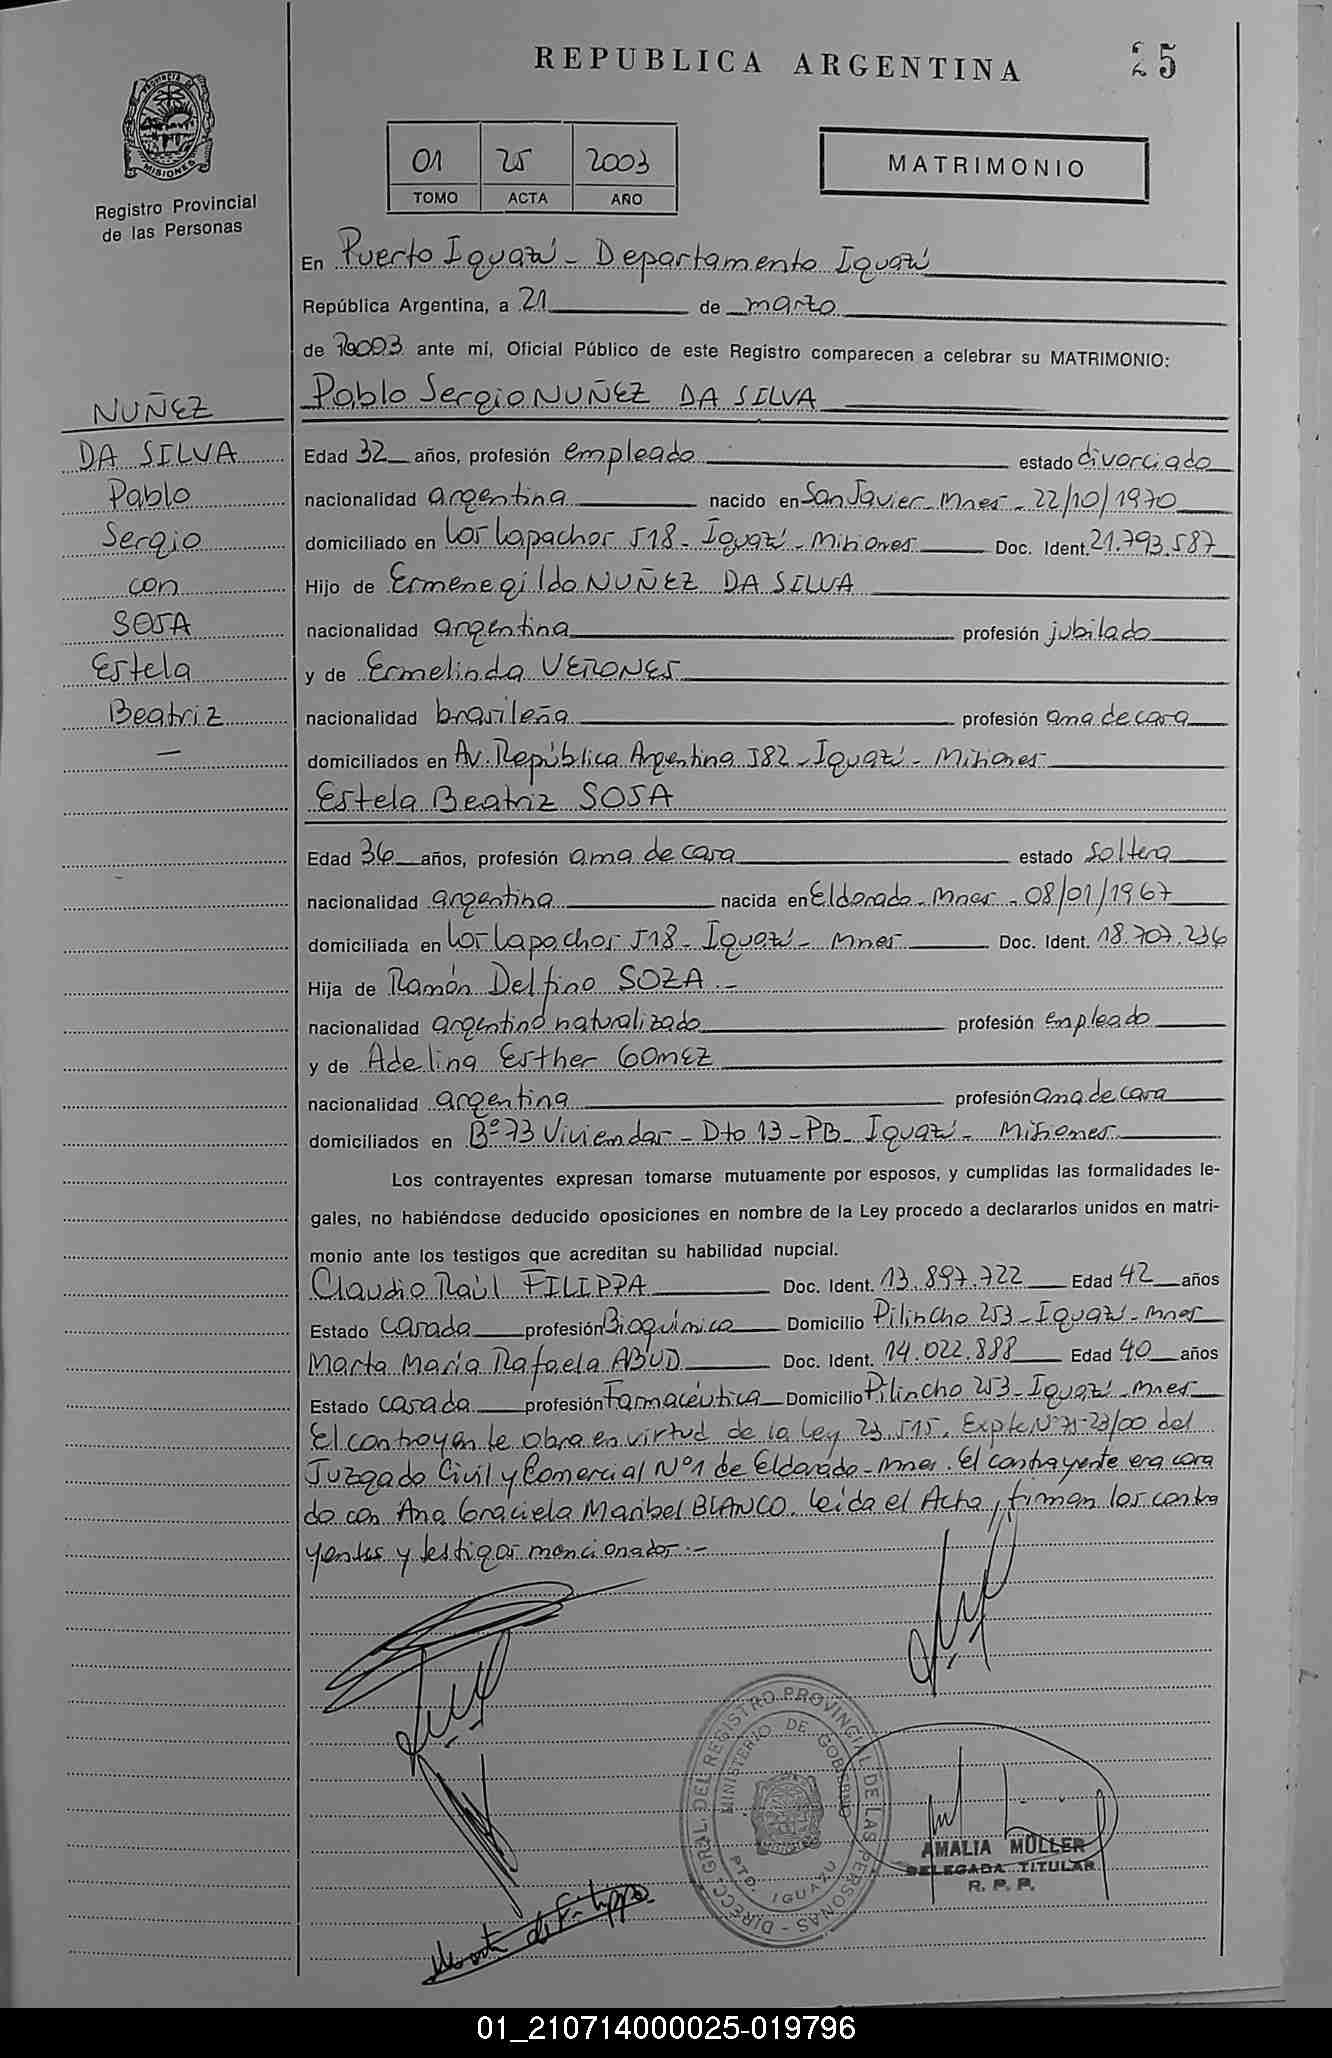 REPUBLICA ARGENTINA
25
PROVINCIA DE
MISIONES
Registro Provincial
de las Personas
01 25 2003
TOMO ACTA AÑO
MATRIMONIO
En Puerto Iguazú - Departamento Iguazú
República Argentina, a 21 de marzo
de 2003 ante mí, Oficial Público de este Registro comparecen a celebrar su MATRIMONIO:
Pablo Sergio NUÑEZ DA SILVA
NUÑEZ
DA SILVA
Pablo
Sergio
con
SOSA
Estela
Beatriz
—
Edad 32 años, profesión empleado estado divorciado
nacionalidad argentina nacido en San Javier - Mnes - 22/10/1970
domiciliado en Los Lapachos 518 - Iguazú - Misiones Doc. Ident. 21.793.587
Hijo de Ermenegildo NUÑEZ DA SILVA
nacionalidad argentina profesión jubilado
y de Ermelinda VERONES
nacionalidad brasileña profesión ama de casa
domiciliados en Av. República Argentina 582 - Iguazú - Misiones
Estela Beatriz SOSA
Edad 36 años, profesión ama de casa estado soltera
nacionalidad argentina nacida en Eldorado - Mnes - 08/01/1967
domiciliada en Los Lapachos 518 - Iguazú - Mnes Doc. Ident. 18.707.236
Hija de Ramón Delfino SOZA.-
nacionalidad argentino naturalizado profesión empleado
y de Adelina Esther GOMEZ
nacionalidad argentina profesión ama de casa
domiciliados en Bº 73 Viviendas - Dto 13 - PB - Iguazú - Misiones
Los contrayentes expresan tomarse mutuamente por esposos, y cumplidas las formalidades le-
gales, no habiéndose deducido oposiciones en nombre de la Ley procedo a declararlos unidos en matri-
monio ante los testigos que acreditan su habilidad nupcial.
Claudio Raúl FILIPPA Doc. Ident. 13.897.722 Edad 42 años
Estado casada profesión Bioquímico Domicilio Pilincho 253 - Iguazú - Mnes
Marta María Rafaela ABUD Doc. Ident. 14.022.888 Edad 40 años
Estado casada profesión Farmacéutica Domicilio Pilincho 253 - Iguazú - Mnes
El contrayente obra en virtud de la Ley 23.515. Expte Nº 71-23/00 del
Juzgado Civil y Comercial Nº1 de Eldorado - Mnes. El contrayente era casa
do con Ana Graciela Maribel BLANCO. Leída el Acta, firman los contra
yentes y testigos mencionados.-
DIRECC. GRAL. DEL REGISTRO PROVINCIAL DE LAS PERSONAS -
MINISTERIO DE GOBIERNO
PTO. IGUAZU
AMALIA MÜLLER
DELEGADA TITULAR
R. P. P.
Marta de Filippa
01_210714000025-019796